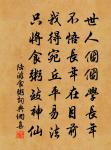 世人個個學長年
不悟長年在目前
我得宛丘平易法
只將食粥致神仙
陸游食粥詩與偶言